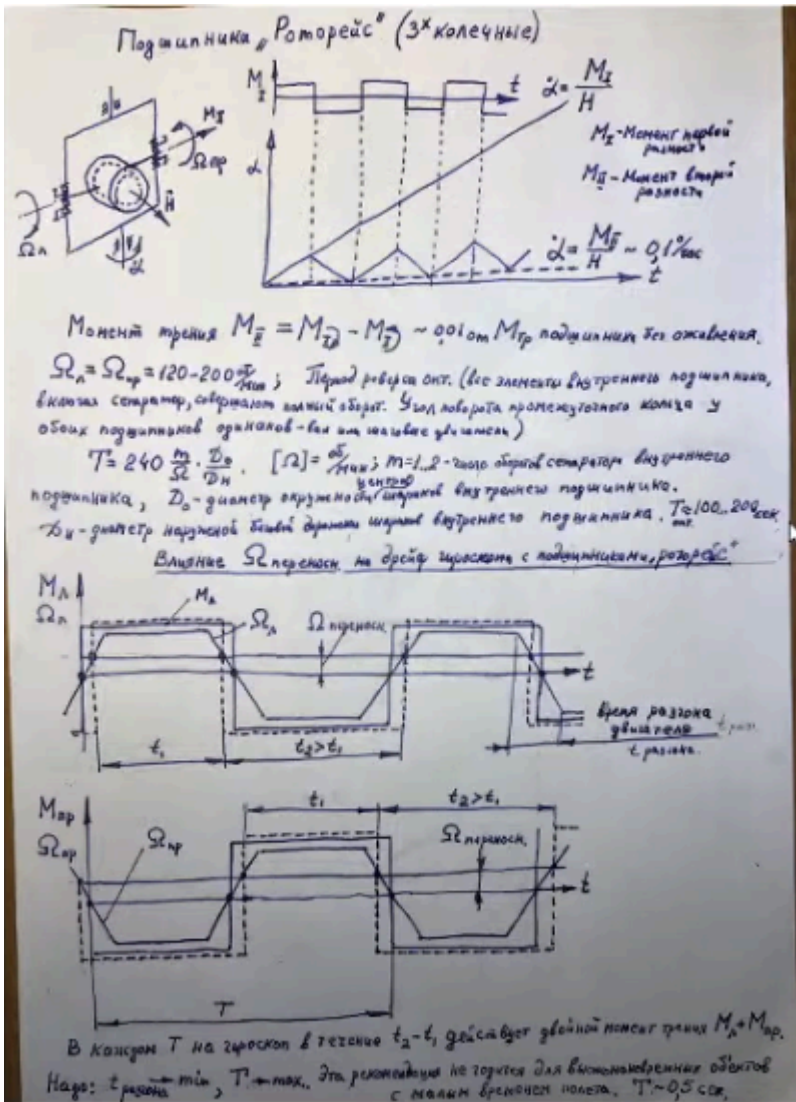 Подшипника „Роторейс" (3х колечные)
M_I
t
α̇ = M_I / H
M_I - Момент первой разности
M_II - Момент второй разности
M_II
Ω_пр
H
Ω_л
α̇
α
α̇ = M_II / H ~ 0,1°/час
t
Момент трения M_II = M_I - M_I ~ 0,01 от M_тр подшипник без оживления.
Ω_л = Ω_пр = 120-200 об/мин; Период реверса опт. (все элементы внутреннего подшипника,
включая сепаратор, совершают полный оборот. Угол поворота промежуточного кольца у
обоих подшипников одинаков - вал или шаговые двигатели)
T = 240 m/Ω · D_o/D_н. [Ω] = об/мин; m=1..2 - число оборотов сепаратора внутреннего
подшипника, D_o - диаметр окружности центров шариков внутреннего подшипника.
D_н - диаметр наружной беговой дорожки шариков внутреннего подшипника. T опт. ≈ 100..200 сек
Влияние Ω переносн. на дрейф гироскопа с подшипниками „роторейс"
M_л
Ω_л
M_л
Ω_л
Ω переносн.
t
t₁
t₂>t₁
время разгона
двигателя
t разгона.
M_пр
Ω_пр
Ω_пр
t₁
t₂>t₁
Ω переносн.
t
T
В каждом T на гироскоп в течение t₂-t₁ действует двойной момент трения M_л+M_пр.
Надо: t разгона → min, T → max. Эта рекомендация не годится для высокоманевренных объектов
с малым временем полета. T~0,5 сек.